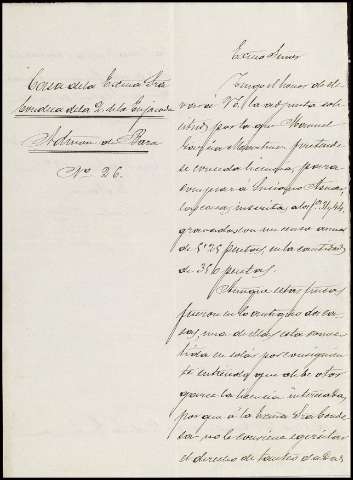 Casa de la Excma Sra
Condesa de la P. de la Enjarada
Admon de Baza
Nº 26.
Excmo Señor
Tengo el honor de ele-
var a V.E. la adjunta soli-
citud por la que Manuel
García Martinez pretende
se conceda licencia, para
comprar a
casas, inscrita, a los fº 31, 44,
gravadas con un censo anual
de 5'75 pesetas, en la cantidad
de 356 pesetas.
Aunque estas fincas
fueron en lo antiguo dos ca-
sas, una de ellas esta conver-
tida en solar por consiguiente
se entiende que debe otor-
garse la licencia interesada,
por que á la Excma Sra Conde-
sa no le conviene egercitar
el derecho de tanteo